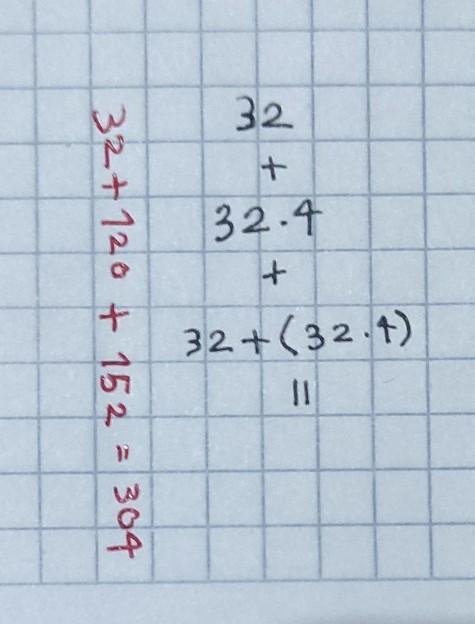 32
+
32.4
+
32+(32.4)
=
32+120+152=304